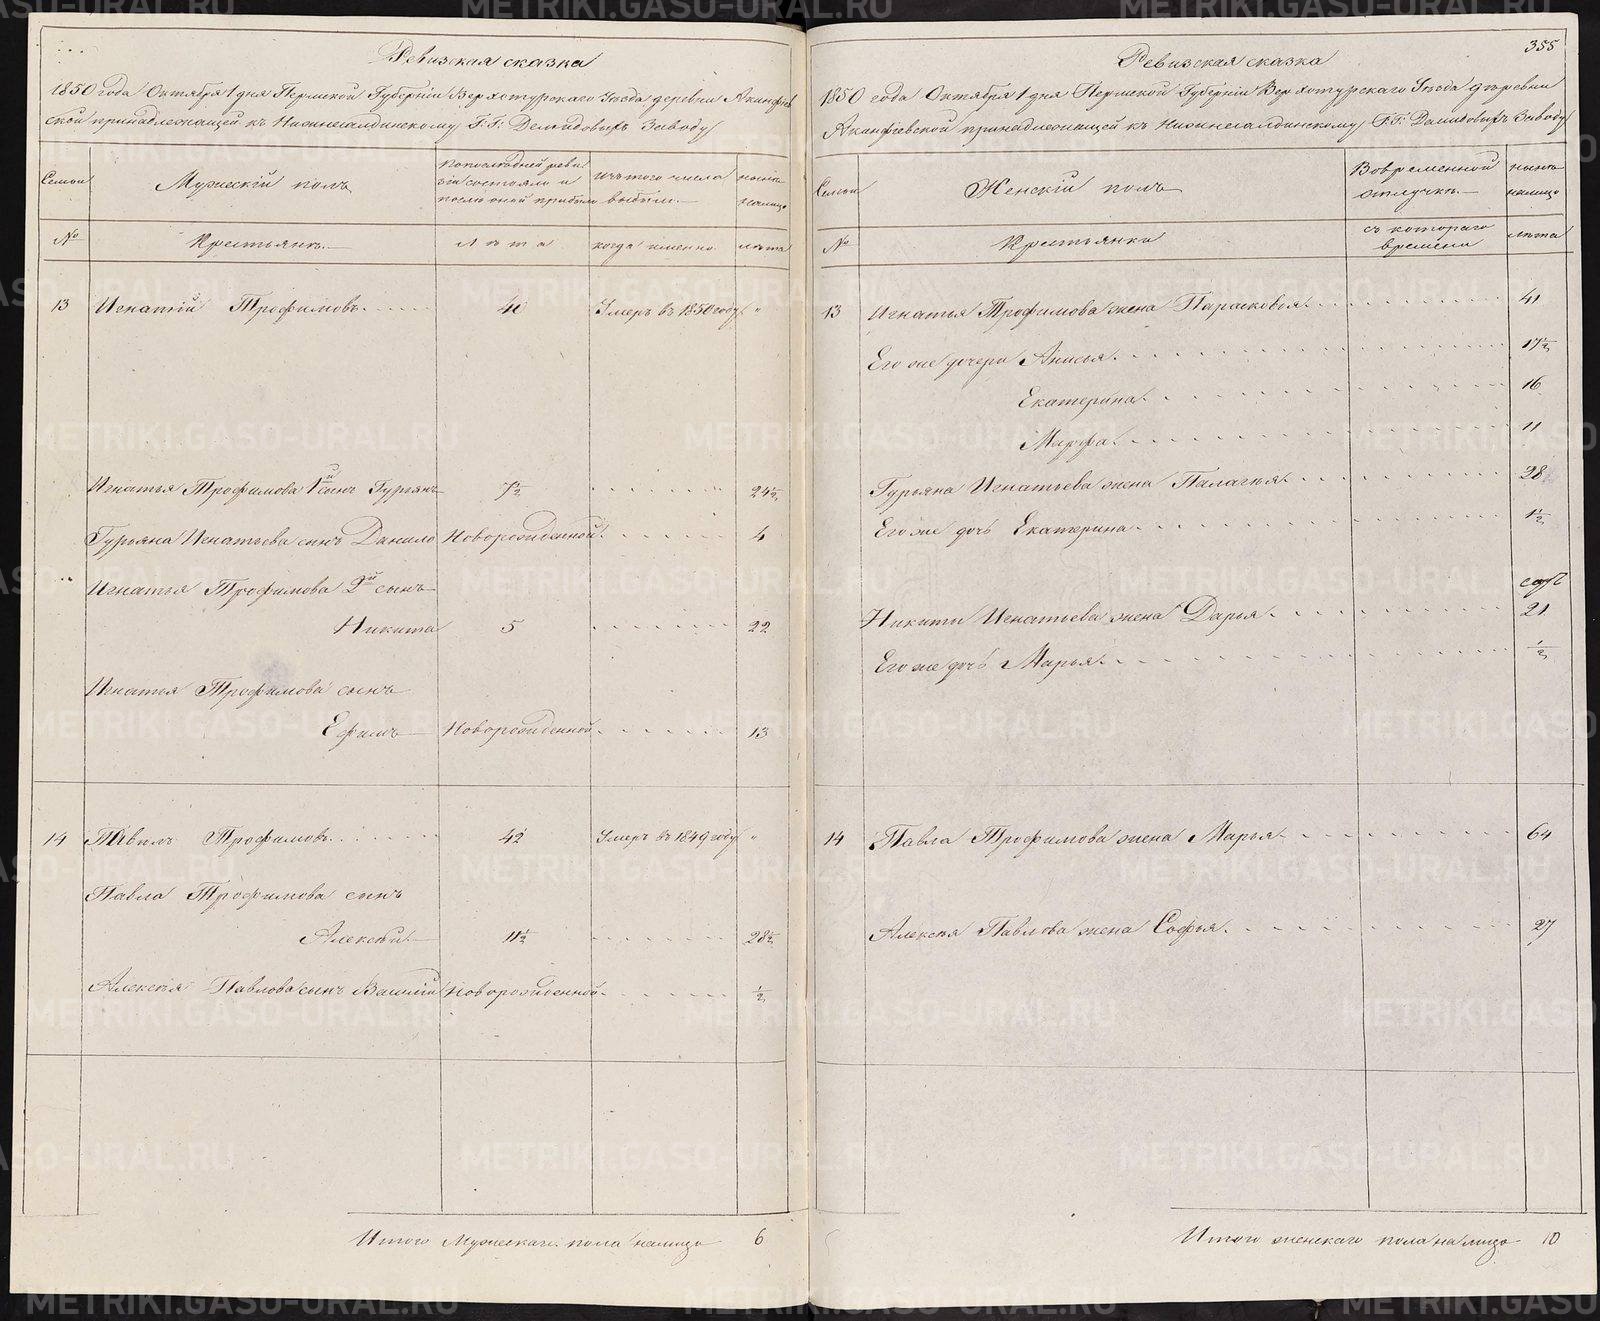 Ревизская сказка
1850 года Октября 1 дня Пермской Губерніи Верхотурскаго Уѣзда деревни Акинфіев
ской принадлежащей къ Нижнесалдинскому Г.Г. Демидовыхъ Заводу
Семьи
Мужескій полъ
По последней реви
зіи состояло и
после оной прибыло
Изъ того числа
выбыли.
нынѣ
налицо
№
Крестьянъ.
Лѣта
когда именно.
лѣта
13 Игнатій Трофимовъ. 41 Умеръ въ 1850 году "
Игнатья Трофимова 1й сынъ Гурьянъ 7½ 24½
Гурьяна Игнатьева сынъ Данило Новорожденной. 4
Игнатья Трофимова 2й сынъ
Никита 5 22
Игнатья Трофимова сынъ
Ефимъ Новорожденной 13
14 Павилъ Трофимовъ. 42 Умеръ въ 1849 году "
Павла Трофимова сынъ
Алексѣй 11½ 28½
Алексѣя Павлова сынъ Василій Новорожденной. ½
Итого Мужескаго пола налицо 6
355
Ревизская сказка
1850 года Октября 1 дня Пермской Губерніи Верхотурскаго Уѣзда деревни
Акинфіевской принадлежащей къ Нижнесалдинскому Г.Г. Демидовыхъ Заводу
Семьи
Женскій полъ
Во временной
отлучкѣ.
нынѣ
налицо
№
Крестьянки
съ котораго
времени
лѣта
13 Игнатья Трофимова жена Парасковья. 41
Его же дочери Анисья. 17½
Екатерина. 16
Марфа. 11
Гурьяна Игнатьева жена Палагея. 28
Его же дочь Екатерина. 1½
Никиты Игнатьева жена Дарья. 21
Его же дочь Марья. ½
14 Павла Трофимова жена Марья. 64
Алексѣя Павлова жена Софья. 27
Итого женскаго пола налицо 10
METRIKI.GASO-URAL.RU